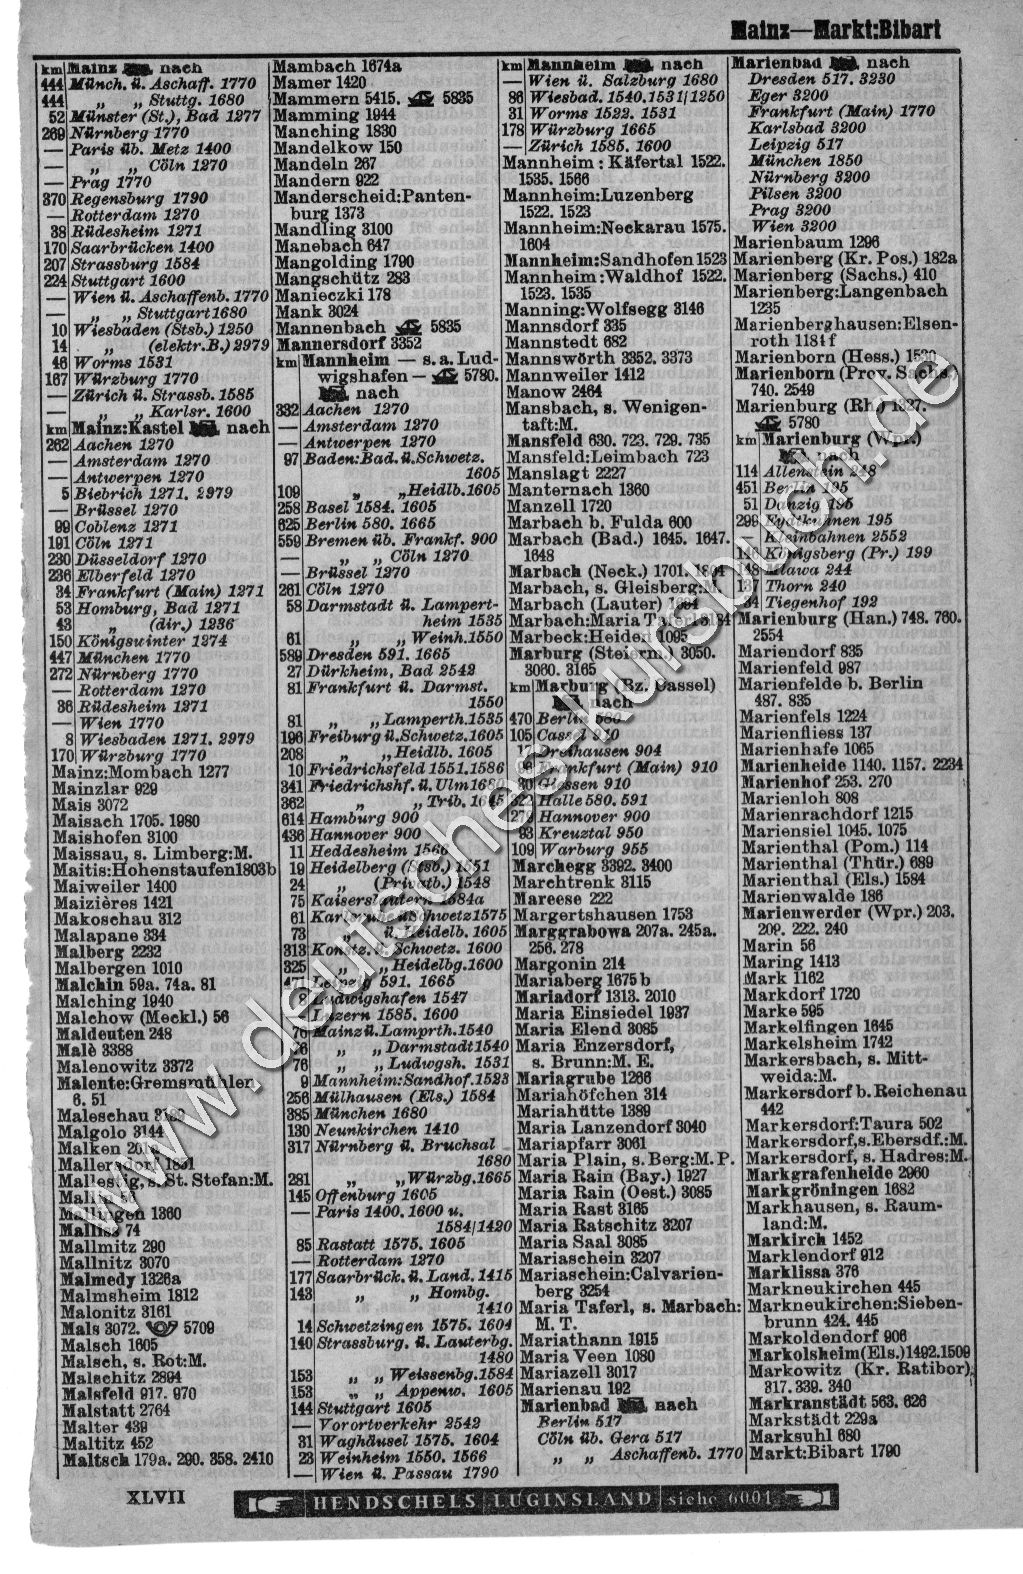 Mainz—Markt:Bibart
km Mainz nach
444 Münch. ü. Aschaff. 1770
444 „ „ Stuttg. 1680
52 Münster (St.), Bad 1277
269 Nürnberg 1770
— Paris üb. Metz 1400
— „ „ Cöln 1270
— Prag 1770
370 Regensburg 1790
— Rotterdam 1270
38 Rüdesheim 1271
170 Saarbrücken 1400
207 Strassburg 1584
224 Stuttgart 1600
— Wien ü. Aschaffenb. 1770
— „ „ Stuttgart 1680
10 Wiesbaden (Stsb.) 1250
14 „ (elektr.B.) 2979
46 Worms 1531
167 Würzburg 1770
— Zürich ü. Strassb. 1585
— „ „ Karlsr. 1600
km Mainz:Kastel nach
262 Aachen 1270
— Amsterdam 1270
— Antwerpen 1270
5 Biebrich 1271. 2979
— Brüssel 1270
99 Coblenz 1271
191 Cöln 1271
230 Düsseldorf 1270
236 Elberfeld 1270
34 Frankfurt (Main) 1271
53 Homburg, Bad 1271
43 „ (dir.) 1236
150 Königswinter 1274
447 München 1770
272 Nürnberg 1770
— Rotterdam 1270
36 Rüdesheim 1271
— Wien 1770
8 Wiesbaden 1271. 2979
170 Würzburg 1770
Mainz:Mombach 1277
Mainzlar 929
Mais 3072
Maisach 1705. 1980
Maishofen 3100
Maissau, s. Limberg:M.
Maitis:Hohenstaufen 1803b
Maiweiler 1400
Maizières 1421
Makoschau 312
Malapane 334
Malberg 2232
Malbergen 1010
Malchin 59a. 74a. 81
Malching 1940
Malchow (Meckl.) 56
Maldeuten 248
Malè 3388
Malenowitz 3372
Malente:Gremsmühlen
6. 51
Maleschau
Malgolo 3144
Malken
Mallersdorf 1851
Mallestig, s. St. Stefan:M.
Mallin
Mallingen 1360
Malliss 74
Mallmitz 290
Mallnitz 3070
Malmedy 1326a
Malmsheim 1812
Malonitz 3161
Mals 3072. 5709
Malsch 1605
Malsch, s. Rot:M.
Malschitz 2894
Malsfeld 917. 970
Malstatt 2764
Malter 439
Maltitz 452
Maltsch 179a. 290. 358. 2410
Mambach 1674a
Mamer 1420
Mammern 5415. 5835
Mamming 1944
Manching 1830
Mandelkow 150
Mandeln 267
Mandern 922
Manderscheid:Panten-
burg 1373
Mandling 3100
Manebach 647
Mangolding 1790
Mangschütz 283
Manieczki 178
Mank 3024
Mannenbach 5835
Mannersdorf 3352
km Mannheim — s. a. Lud-
wigshafen — 5780.
nach
332 Aachen 1270
— Amsterdam 1270
— Antwerpen 1270
97 Baden:Bad. ü. Schwetz.
1605
109 „ „ Heidlb. 1605
258 Basel 1584. 1605
625 Berlin 580. 1665
559 Bremen üb. Frankf. 900
— „ „ Cöln 1270
— Brüssel 1270
261 Cöln 1270
58 Darmstadt ü. Lampert-
heim 1535
61 „ „ Weinh. 1550
589 Dresden 591. 1665
27 Dürkheim, Bad 2542
81 Frankfurt ü. Darmst.
1550
81 „ „ Lamperth. 1535
196 Freiburg ü. Schwetz. 1605
208 „ „ Heidlb. 1605
10 Friedrichsfeld 1551. 1586
341 Friedrichshf. ü. Ulm 1680
362 „ „ Trib. 1645
614 Hamburg 900
436 Hannover 900
11 Heddesheim 1566
19 Heidelberg (Stsb.) 1551
24 „ (Privatb.) 1548
75 Kaiserslautern 1584a
61 Karlsruhe ü. Schwetz 1575
73 „ ü. Heidelb. 1605
313 Konstz. ü. Schwetz. 1600
325 „ „ Heidelbg. 1600
471 Leipzig 591. 1665
8 Ludwigshafen 1547
Luzern 1585. 1600
76 Mainz ü. Lamprth. 1540
„ „ Darmstadt 1540
76 „ „ Ludwgsh. 1531
9 Mannheim:Sandhof. 1523
256 Mülhausen (Els.) 1584
385 München 1680
130 Neunkirchen 1410
317 Nürnberg ü. Bruchsal
1680
281 „ „ Würzbg. 1665
145 Offenburg 1605
— Paris 1400. 1600 u.
1584|1420
85 Rastatt 1575. 1605
— Rotterdam 1270
177 Saarbrück. ü. Land. 1415
143 „ „ Hombg.
1410
14 Schwetzingen 1575. 1604
140 Strassburg. ü. Lauterbg.
1480
153 „ „ Weissenbg. 1584
153 „ „ Appenw. 1605
144 Stuttgart 1605
— Vorortverkehr 2542
31 Waghäusel 1575. 1604
23 Weinheim 1550. 1566
— Wien ü. Passau 1790
km Mannheim nach
— Wien ü. Salzburg 1680
86 Wiesbad. 1540. 1531|1250
31 Worms 1522. 1531
178 Würzburg 1665
— Zürich 1585. 1600
Mannheim:Käfertal 1522.
1535. 1566
Mannheim:Luzenberg
1522. 1523
Mannheim:Neckarau 1575.
1604
Mannheim:Sandhofen 1523
Mannheim:Waldhof 1522.
1523. 1535
Manning:Wolfsegg 3146
Mannsdorf 335
Mannstedt 682
Mannswörth 3352. 3373
Mannweiler 1412
Manow 2464
Mansbach, s. Wenigen-
taft:M.
Mansfeld 630. 723. 729. 735
Mansfeld:Leimbach 723
Manslagt 2227
Manternach 1360
Manzell 1720
Marbach b. Fulda 600
Marbach (Bad.) 1645. 1647.
1648
Marbach (Neck.) 1701. 1804
Marbach, s. Gleisberg:M.
Marbach (Lauter)
Marbach:Maria Taferl 3184
Marbeck:Heiden 1095
Marburg (Steierm.) 3050.
3060. 3165
km Marburg (Bz. Cassel)
nach
470 Berlin 580
105 Cassel
Dreihausen 904
Frankfurt (Main) 910
30 Giessen 910
Halle 580. 591
Hannover 900
93 Kreuztal 950
109 Warburg 955
Marchegg 3392. 3400
Marchtrenk 3115
Mareese 222
Margertshausen 1753
Marggrabowa 207a. 245a.
256. 278
Margonin 214
Mariaberg 1675b
Mariadorf 1313. 2010
Maria Einsiedel 1937
Maria Elend 3085
Maria Enzersdorf,
s. Brunn:M. E.
Mariagrube 1266
Mariahöfchen 314
Mariahütte 1389
Maria Lanzendorf 3040
Mariapfarr 3061
Maria Plain, s. Berg:M. P.
Maria Rain (Bay.) 1927
Maria Rain (Oest.) 3085
Maria Rast 3165
Maria Ratschitz 3207
Maria Saal 3085
Mariaschein 3207
Mariaschein:Calvarien-
berg 3254
Maria Taferl, s. Marbach:
M. T.
Mariathann 1915
Maria Veen 1080
Mariazell 3017
Marienau 192
Marienbad nach
Berlin 517
Cöln üb. Gera 517
„ „ Aschaffenb. 1770
Marienbad nach
Dresden 517. 3230
Eger 3200
Frankfurt (Main) 1770
Karlsbad 3200
Leipzig 517
München 1850
Nürnberg 3200
Pilsen 3200
Prag 3200
Wien 3200
Marienbaum 1296
Marienberg (Kr. Pos.) 182a
Marienberg (Sachs.) 410
Marienberg:Langenbach
1235
Marienberghausen:Elsen-
roth 1184f
Marienborn (Hess.) 1530
Marienborn (Prov. Sachs.)
740. 2549
Marienburg (Rh.) 1337.
5780
km Marienburg (Wpr.)
nach
114 Allenstein 248
451 Berlin 195
51 Danzig 195
299 Eydtkuhnen 195
Kleinbahnen 2552
Königsberg (Pr.) 199
148 Mlawa 244
137 Thorn 240
Tiegenhof 192
Marienburg (Han.) 748. 760.
2554
Mariendorf 835
Marienfeld 987
Marienfelde b. Berlin
487. 835
Marienfels 1224
Marienfliess 137
Marienhafe 1065
Marienheide 1140. 1157. 2234
Marienhof 253. 270
Marienloh 808
Marienrachdorf 1215
Mariensiel 1045. 1075
Marienthal (Pom.) 114
Marienthal (Thür.) 689
Marienthal (Els.) 1584
Marienwalde 186
Marienwerder (Wpr.) 203.
209. 222. 240
Marin 56
Maring 1413
Mark 1162
Markdorf 1720
Marke 595
Markelfingen 1645
Markelsheim 1742
Markersbach, s. Mitt-
weida:M.
Markersdorf b. Reichenau
442
Markersdorf:Taura 502
Markersdorf, s. Ebersdf.:M.
Markersdorf, s. Hadres:M.
Markgrafenheide 2960
Markgröningen 1682
Markhausen, s. Raum-
land:M.
Markirch 1452
Marklendorf 912
Marklissa 376
Markneukirchen 445
Markneukirchen:Sieben-
brunn 424. 445
Markoldendorf 906
Markolsheim (Els.) 1492. 1509
Markowitz (Kr. Ratibor)
317. 339. 340
Markranstädt 563. 626
Markstädt 229a
Marksuhl 680
Markt:Bibart 1790
XLVII
HENDSCHELS LUGINSLAND siehe 6001
www.deutsches-kursbuch.de